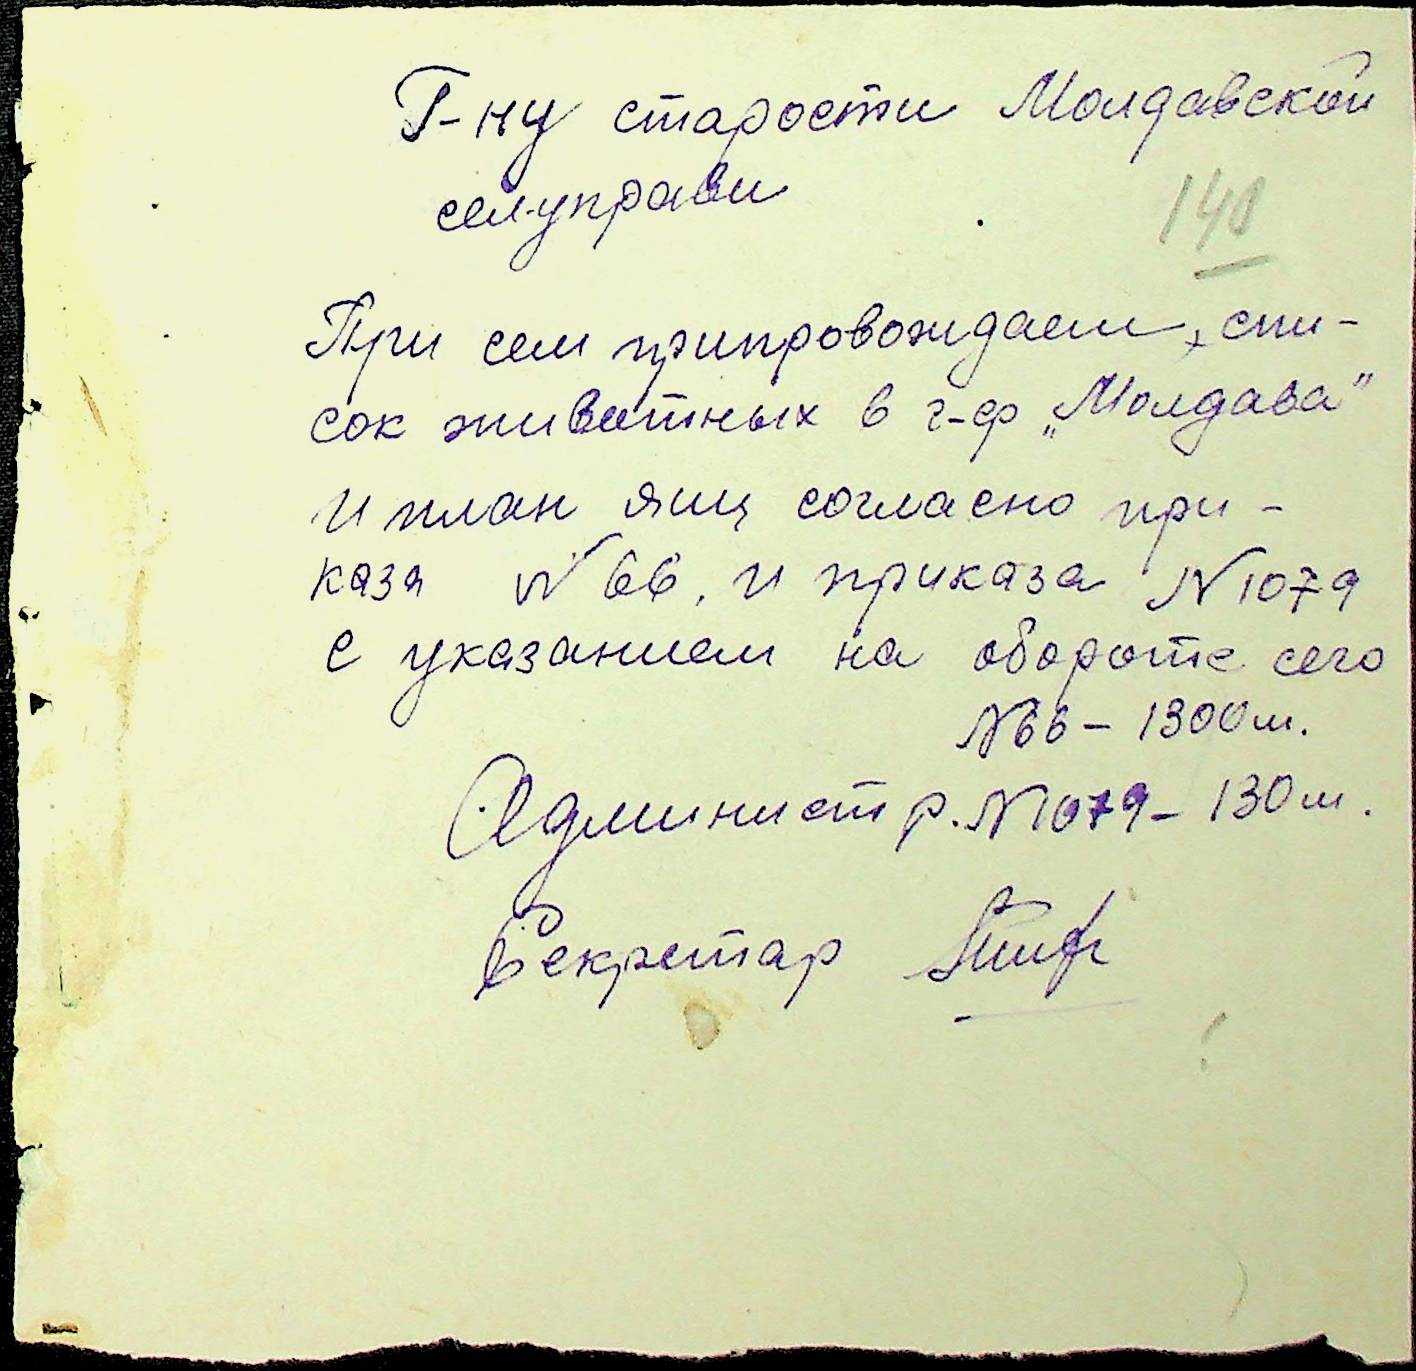 Г-ну старости Молдавской
сел.управи
140
При сем припровождаем, спи-
сок животных в г-ф „Молдава"
и план яиц согласно при-
каза № 66, и приказа N 1079
с указанием на обороте сего
N 66 - 1300 ш.
Администр. N 1079 - 130 ш.
Секретар